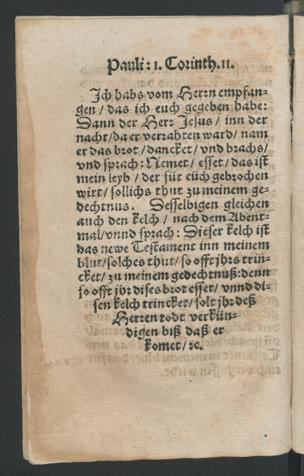 Pauli: 1. Corinth. 11.
Ich habs vom Herrn empfan-
gen / das ich euch gegeben habe:
Dann der Herr Jesus / inn der
nacht / da er verrahten ward / nam
er das brot / dancket / vnd brachs /
vnd sprach: Nemet / esset / das ist
mein leyb / der für eüch gebrochen
wirt / sollichs thut zu meinem ge-
dechtnus. Desselbigen gleichen
auch den kelch / nach dem Abent-
mal / vnnd sprach: Dieser kelch ist
das newe Testament inn meinem
blut / solches thut / so offt jhrs trin-
cket / zu meinem gedechtnuß: denn
so offt jhr dises brot esset / vnnd di-
sen kelch trincket / solt jhr deß
Herren todt verkün-
digen biß daß er
komet / ꝛc.